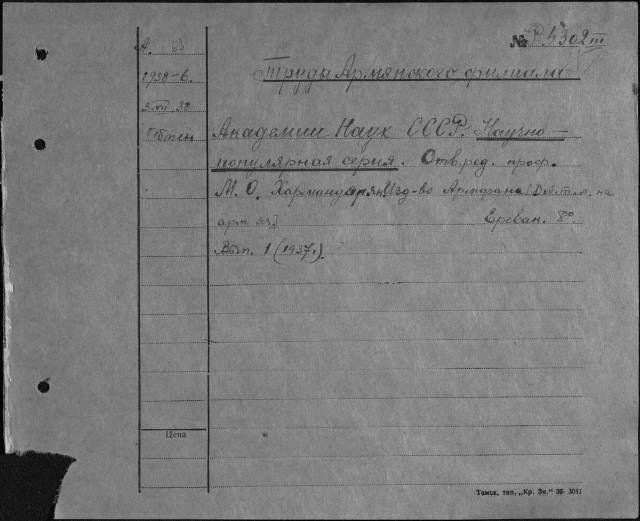 № Р. 4302 III
А. 93
1938-в.
Труды Армянского филиала
3.XII 38
Обмен
Академии Наук СССР. Научно-
популярная серия. Отв. ред. проф.
М. О. Хармандарян. Изд-во Армфана. [ на
арм. яз.] Ереван. 8°
Вып. 1 (1937).
Цена
Томск, тип. „Кр. Зн." 36-3011